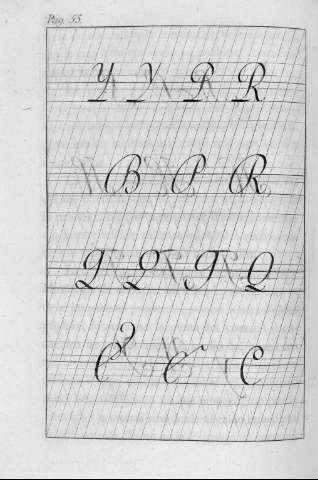 Pag. 55.
Y Y R R
B P R
Q Q T Q
C C C